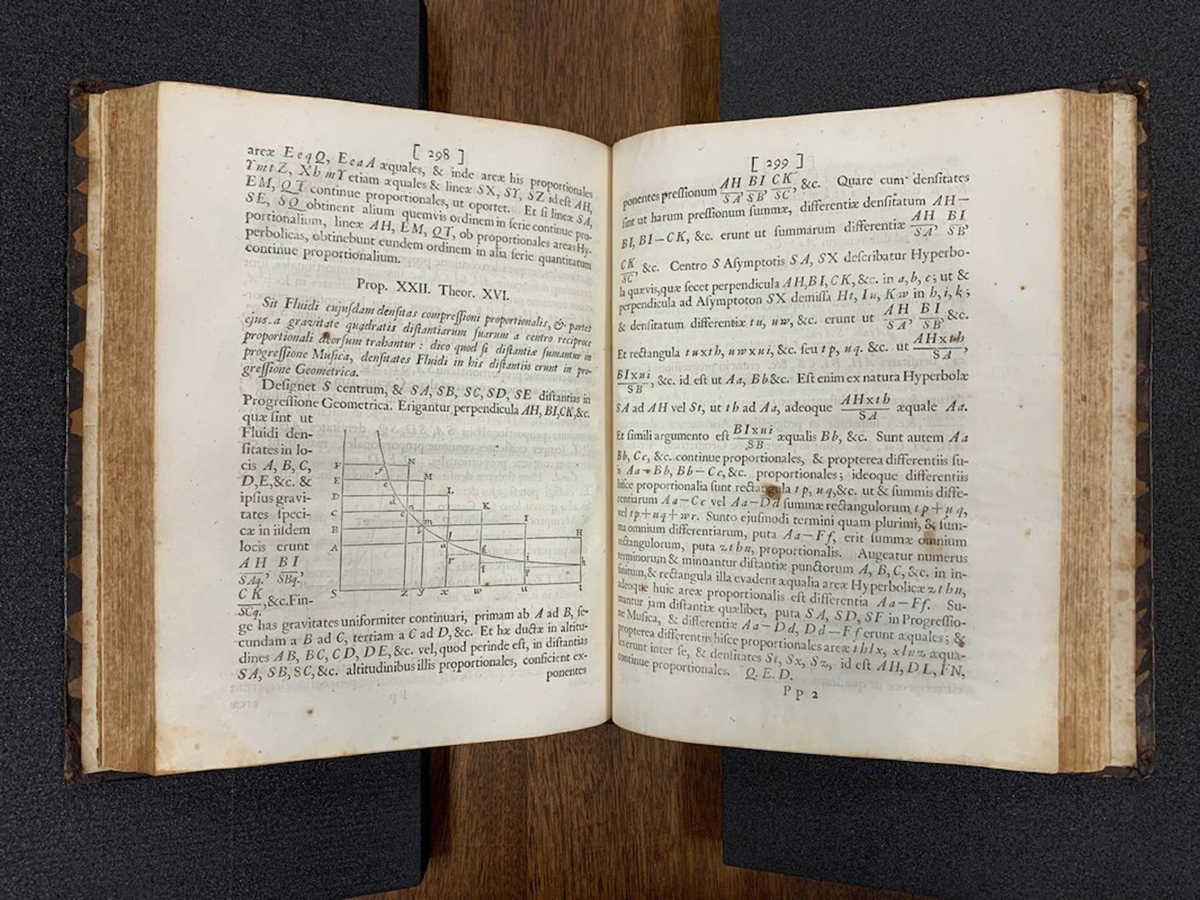 [ 298 ]
areæ EeqQ, EeaA æquales, & inde areæ his proportionales
YmtZ, XhmY etiam æquales & lineæ SX, SY, SZ id est AH,
EM, QT continue proportionales, ut oportet. Et si lineæ SA,
SE, SQ obtinent alium quemvis ordinem in serie continue pro-
portionalium, lineæ AH, EM, QT, ob proportionales areas Hy-
perbolicas, obtinebunt eundem ordinem in alia serie quantitatum
continue proportionalium.
Prop. XXII. Theor. XVI.
Sit Fluidi cujusdam densitas compressioni proportionalis, & partes
ejus a gravitate quadratis distantiarum suarum a centro reciproce
proportionali deorsum trahantur: dico quod si distantiæ sumantur in
progressione Musica, densitates Fluidi in his distantiis erunt in pro-
gressione Geometrica.
Designet S centrum, & SA, SB, SC, SD, SE distantias in
Progressione Geometrica. Erigantur perpendicula AH, BI, CK, &c.
quæ sint ut
Fluidi den-
sitates in lo-
cis A, B, C,
D, E, &c. &
ipsius gravi-
tates speci-
cæ in iisdem
locis erunt
AH BI
SAq.' SBq.'
CK
SCq.' &c. Fin-
F N
E M
D L
C K
B I
A H
S z y x w u t
ge has gravitates uniformiter continuari, primam ab A ad B, se-
cundam a B ad C, tertiam a C ad D, &c. Et hæ ductæ in altitu-
dines AB, BC, CD, DE, &c. vel, quod perinde est, in distantias
SA, SB, SC, &c. altitudinibus illis proportionales, conficient ex-
ponentes
Pp
[ 299 ]
ponentes pressionum AH/SA, BI/SB, CK/SC, &c. Quare cum densitates
sint ut harum pressionum summæ, differentiæ densitatum AH—
BI, BI—CK, &c. erunt ut summarum differentiæ AH/SA, BI/SB,
CK/SC, &c. Centro S Asymptotis SA, SX describatur Hyperbo-
la quævis, quæ secet perpendicula AH, BI, CK, &c. in a, b, c; ut &
perpendicula ad Asymptoton SX demissa Ht, Iu, Kw in h, i, k;
& densitatum differentiæ tu, uw, &c. erunt ut AH/SA, BI/SB, &c.
Et rectangula tu x th, uw x ui, &c. seu tp, uq. &c. ut AH x th/SA,
BI x ui/SB, &c. id est ut Aa, Bb &c. Est enim ex natura Hyperbolæ
SA ad AH vel St, ut th ad Aa, adeoque AH x th/SA æquale Aa.
Et simili argumento est BI x ui/SB æqualis Bb, &c. Sunt autem Aa
Bb, Cc, &c. continue proportionales, & propterea differentiis su-
is Aa—Bb, Bb—Cc, &c. proportionales; ideoque differentiis
hisce proportionalia sunt rectangula tp, uq, &c. ut & summis diffe-
rentiarum Aa—Cc vel Aa—Dd summæ rectangulorum tp+uq,
vel tp+uq+wr. Sunto ejusmodi termini quam plurimi, & sum-
ma omnium differentiarum, puta Aa—Ff, erit summæ omnium
rectangulorum, puta zthn, proportionalis. Augeatur numerus
terminorum & minuantur distantiæ punctorum A, B, C, &c. in in-
finitum, & rectangula illa evadent æqualia areæ Hyperbolicæ zthn,
adeoque huic areæ proportionalis est differentia Aa—Ff. Su-
mantur jam distantiæ quælibet, puta SA, SD, SF in Progressio-
ne Musica, & differentiæ Aa—Dd, Dd—Ff erunt æquales; &
propterea differentiis hisce proportionales areæ thlx, xlnz æqua-
les erunt inter se, & densitates St, Sx, Sz, id est AH, DL, FN,
continue proportionales. Q. E. D.
Pp 2